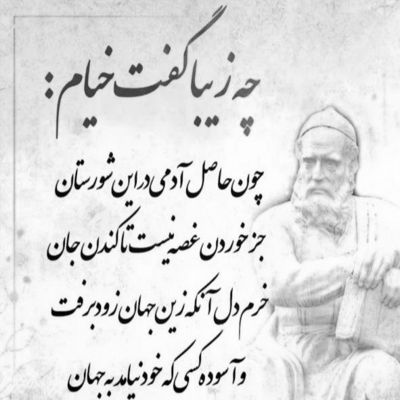 چه زیبا گفت خیام :
چون حاصل آدمی در این شورستان
جز خوردن غصه نیست تا کندن جان
خرم دل آنکه زین جهان زود برفت
و آسوده کسی که خود نیامد به جهان